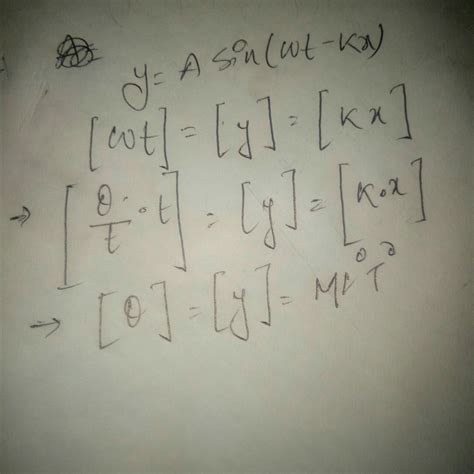 y = A sin(ωt - kx)
[ωt] = [y] = [kx]
→ [θ/t · t] = [y] = [k·x]
→ [θ] = [y] = M L⁰ T⁰